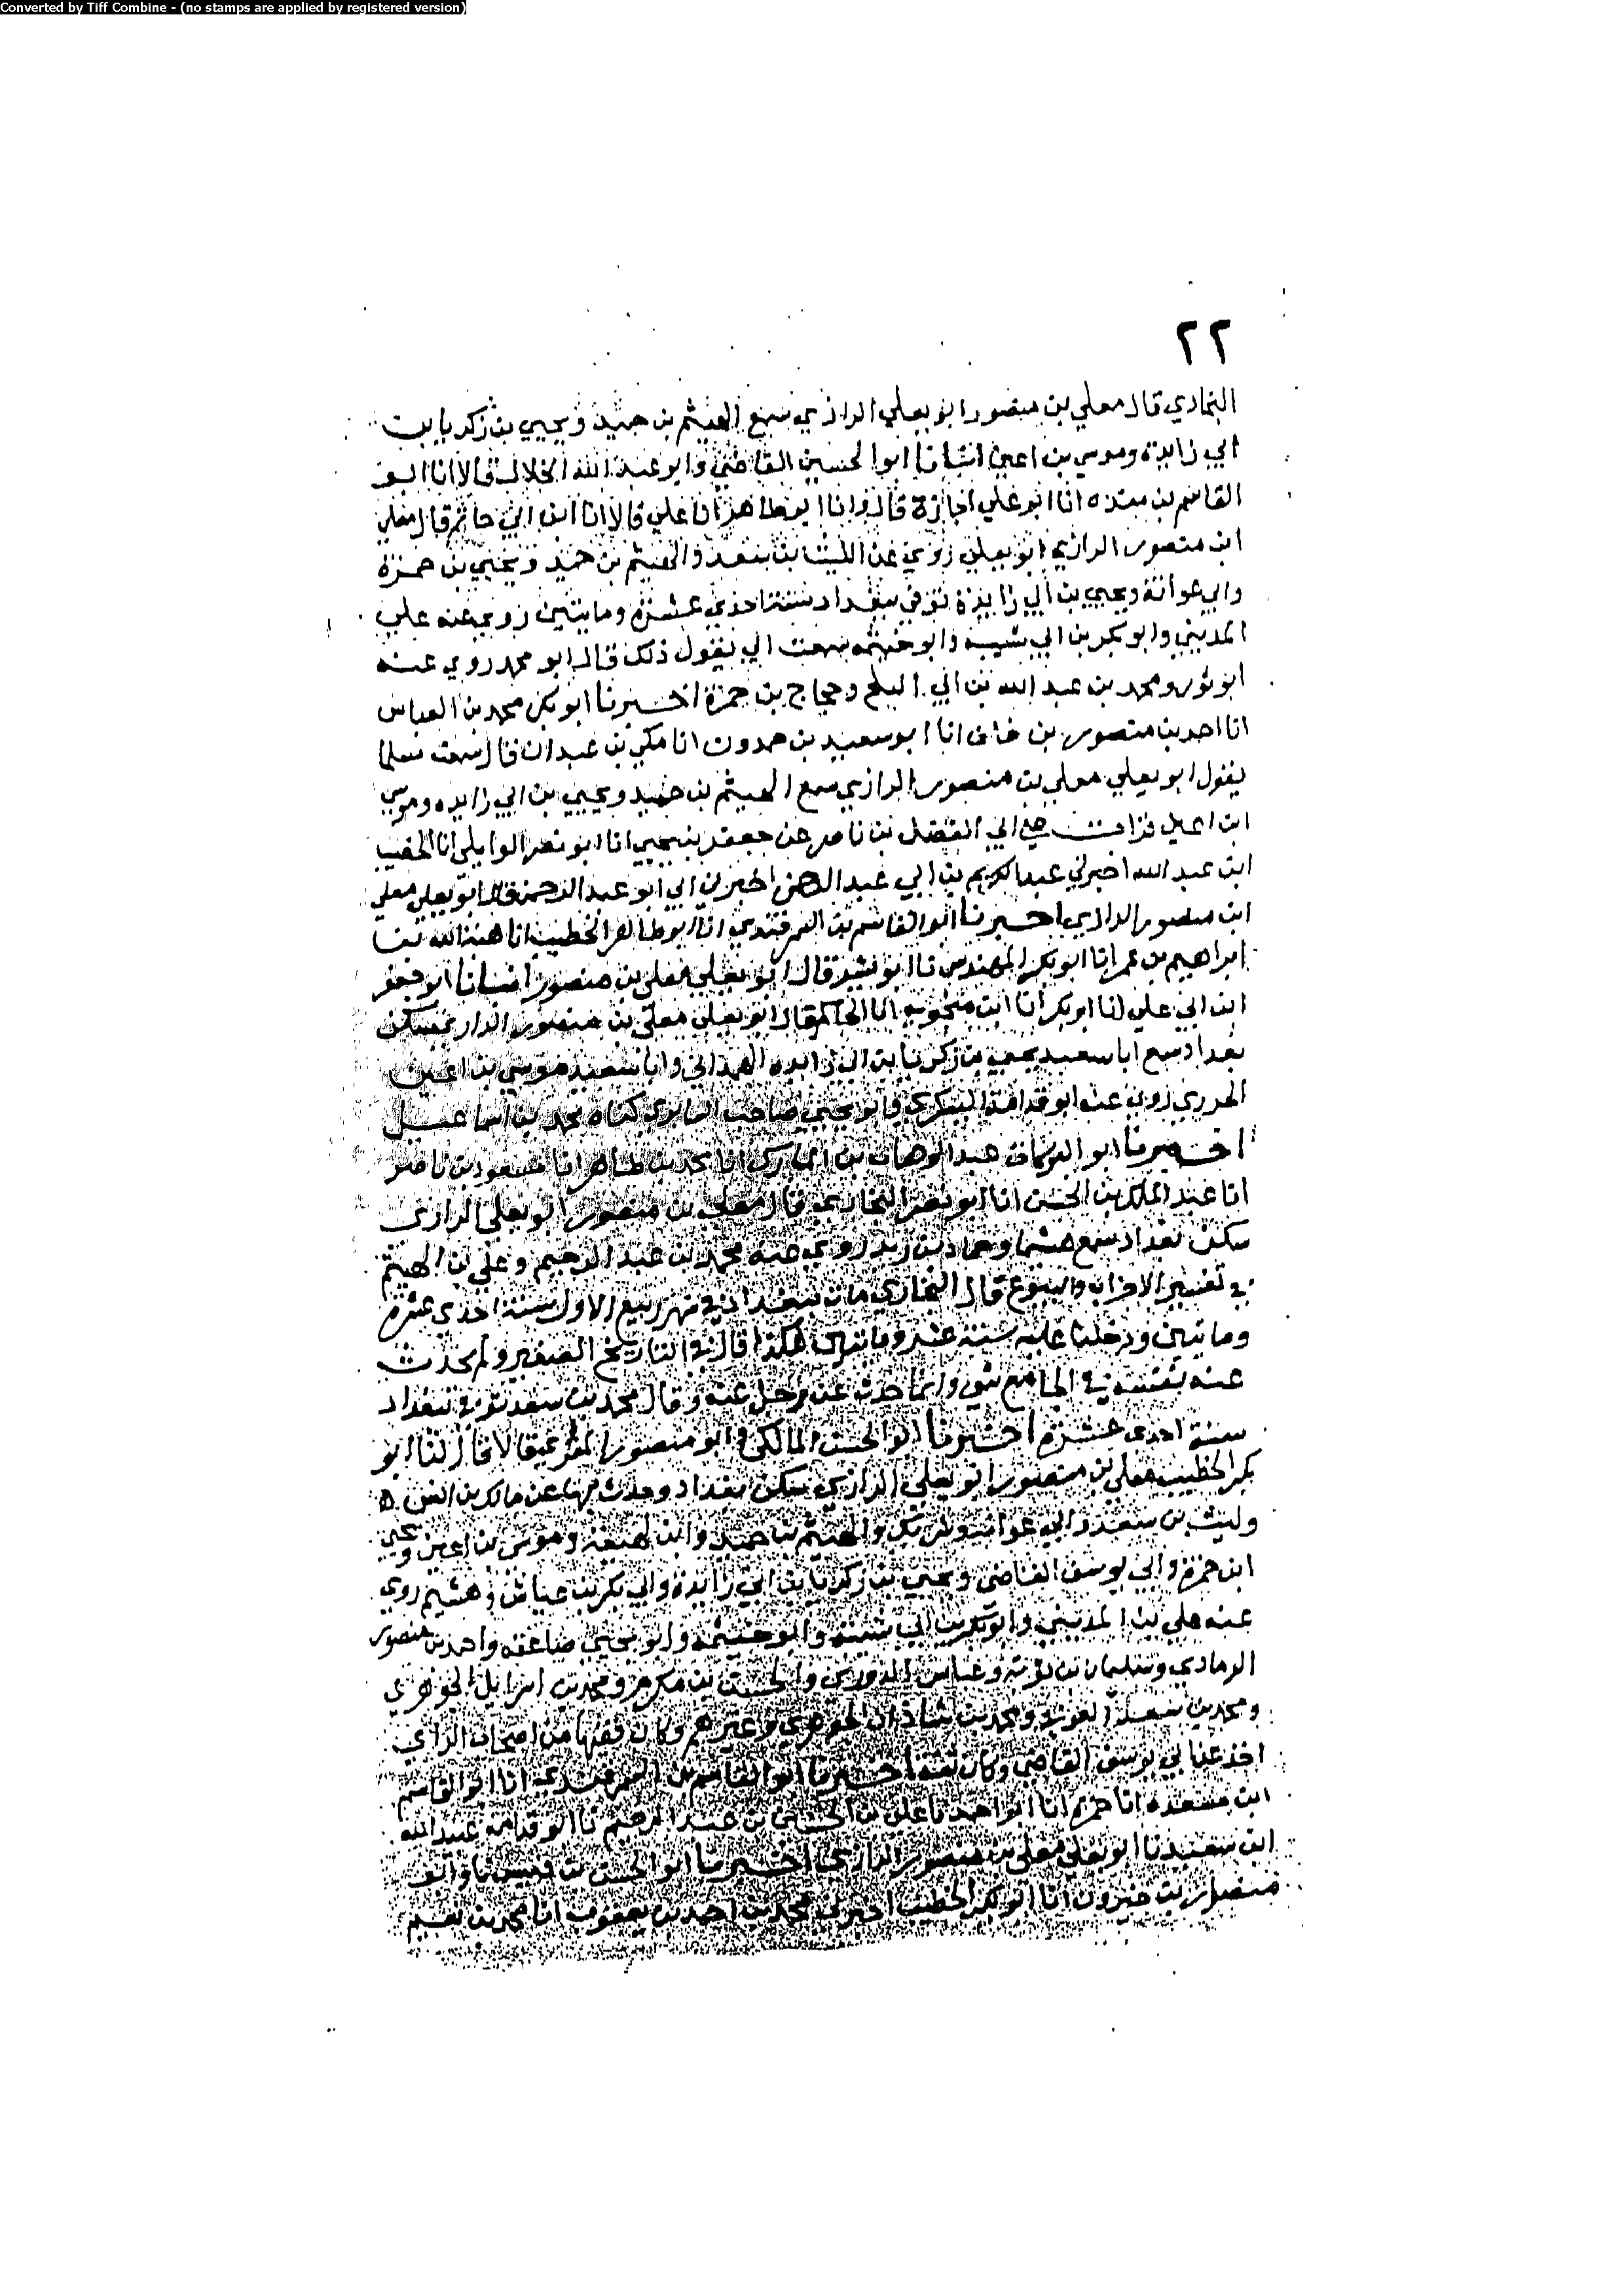 Converted by Tiff Combine - (no stamps are applied by registered version)
٢٢
البخاري قال معلي بن منصور ابو يعلي الرازي سمع الهيثم بن حميد ويحيي بن زكريا بن
ابي زايدة وموسي بن اعين انبانا ابو الحسين القاضي وابو عبد الله الخلال قالا انا ابو
القاسم بن منده انا ابو علي اجازة قال وانا ابو طاهر انا علي قالا انا ابن ابي حاتم قال معلي
ابن منصور الرازي ابو يعلي روي عن الليث بن سعد والهيثم بن حميد ويحيي بن حمزة
وابي عوانة ويحيي بن ابي زايدة توفي ببغداد سنة احدي عشرة ومايتين روي عنه علي
المديني وابو بكر بن ابي شيبه وابو خيثمه سمعت ابي يقول ذلك قال ابو محمد روي عنه
ابو ثور ومحمد بن عبد الله بن ابي الثلج وحجاج بن حمزة اخبرنا ابو بكر محمد بن العباس
انا احمد بن منصور بن خلف انا ابو سعيد بن حمدون انا مكي بن عبدان قال سمعت مسلما
يقول ابو يعلي معلي بن منصور الرازي سمع الهيثم بن حميد ويحيي بن ابي زايده وموسي
ابن اعين قرات علي ابي الفضل بن ناصر عن جعفر بن يحيي انا ابو نصر الوايلي انا الخصيب
ابن عبد الله اخبرني عبد الكريم بن ابي عبد الرحمن اخبرني ابي ابو عبد الرحمن قال ابو يعلي معلي
ابن منصور الرازي اخبرنا ابو القاسم بن السمرقندي انا ابو طاهر الخطيب انا هبة الله بن
ابراهيم بن عمر انا ابو بكر المهندس نا ابو بشر قال ابو يعلي معلي بن منصور انبانا ابو جعفر
ابن ابي علي انا ابو بكر انا ابن منجويه انا الحاكم قال ابو يعلي معلي بن منصور الرازي سكن
بغداد سمع ابا سعيد يحيي بن زكريا بن ابي زايده الهمداني وابا سعيد موسي بن اعين
الحرري روي عنه ابو قدامة اليشكري وابو يحيي صاحب السابري كناه محمد بن اسماعيل
اخبرنا ابو البركات عبد الوهاب بن المبارك انا محمد بن طاهر انا مسعود بن ناصر
انا عبد الملك بن الحسن انا ابو نصر البخاري قال معلي بن منصور ابو يعلي الرازي
سكن بغداد سمع هشيما وحماد بن زيد روي عنه محمد بن عبد الرحيم وعلي بن الهيثم
في تفسير الاحزاب والبيوع قال البخاري مات ببغداد في شهر ربيع الاول سنة احدي عشرة
ومايتين ودخلنا عليه سنة عشر ومايتين هكذا قال في التاريخ الصغير ولم يحدث
عنه بنفسه في الجامع بشي وانما حدث عن رجل عنه وقال محمد بن سعد توفي ببغداد
سنة احدي عشرة اخبرنا ابو الحسن المالكي وابو منصور المقري قالا قال لنا ابو
بكر الخطيب معلي بن منصور ابو يعلي الرازي سكن بغداد وحدث بها عن مالك بن انس ه
وليث بن سعد وابي عوانة وشريك والهيثم بن حميد وابن لهيعة وموسي بن اعين ويحيي
ابن حمزة وابي يوسف القاضي ويحيي بن زكريا بن ابي زايدة وابي بكر بن عياش وهشيم روي
عنه علي بن المديني وابو بكر بن ابي شيبه وابو خيثمه وابو يحيي صاعقه واحمد بن منصور
الرمادي وسليمان بن توبة وعباس الدوري والحسن بن مكرم ومحمد بن اسرايل الجوهري
ومحمد بن سعد العوفي ومحمد بن شاذان الجوهري وغيرهم وكان فقيها من اصحاب الراي
اخذ عن ابي يوسف القاضي وكان ثقة اخبرنا ابو القاسم بن السمرقندي انا ابو القاسم
ابن مسعده انا حمزة انا ابو احمد نا علي بن الحسين بن عبد الرحيم نا ابو قدامة عبيد الله
ابن سعيد نا ابو يعلي معلي بن منصور الرازي اخبرنا ابو الحسن بن قبيس نا وابو
منصور بن خيرون انا ابو بكر الخطيب اخبرني محمد بن احمد بن يعقوب انا محمد بن نعيم